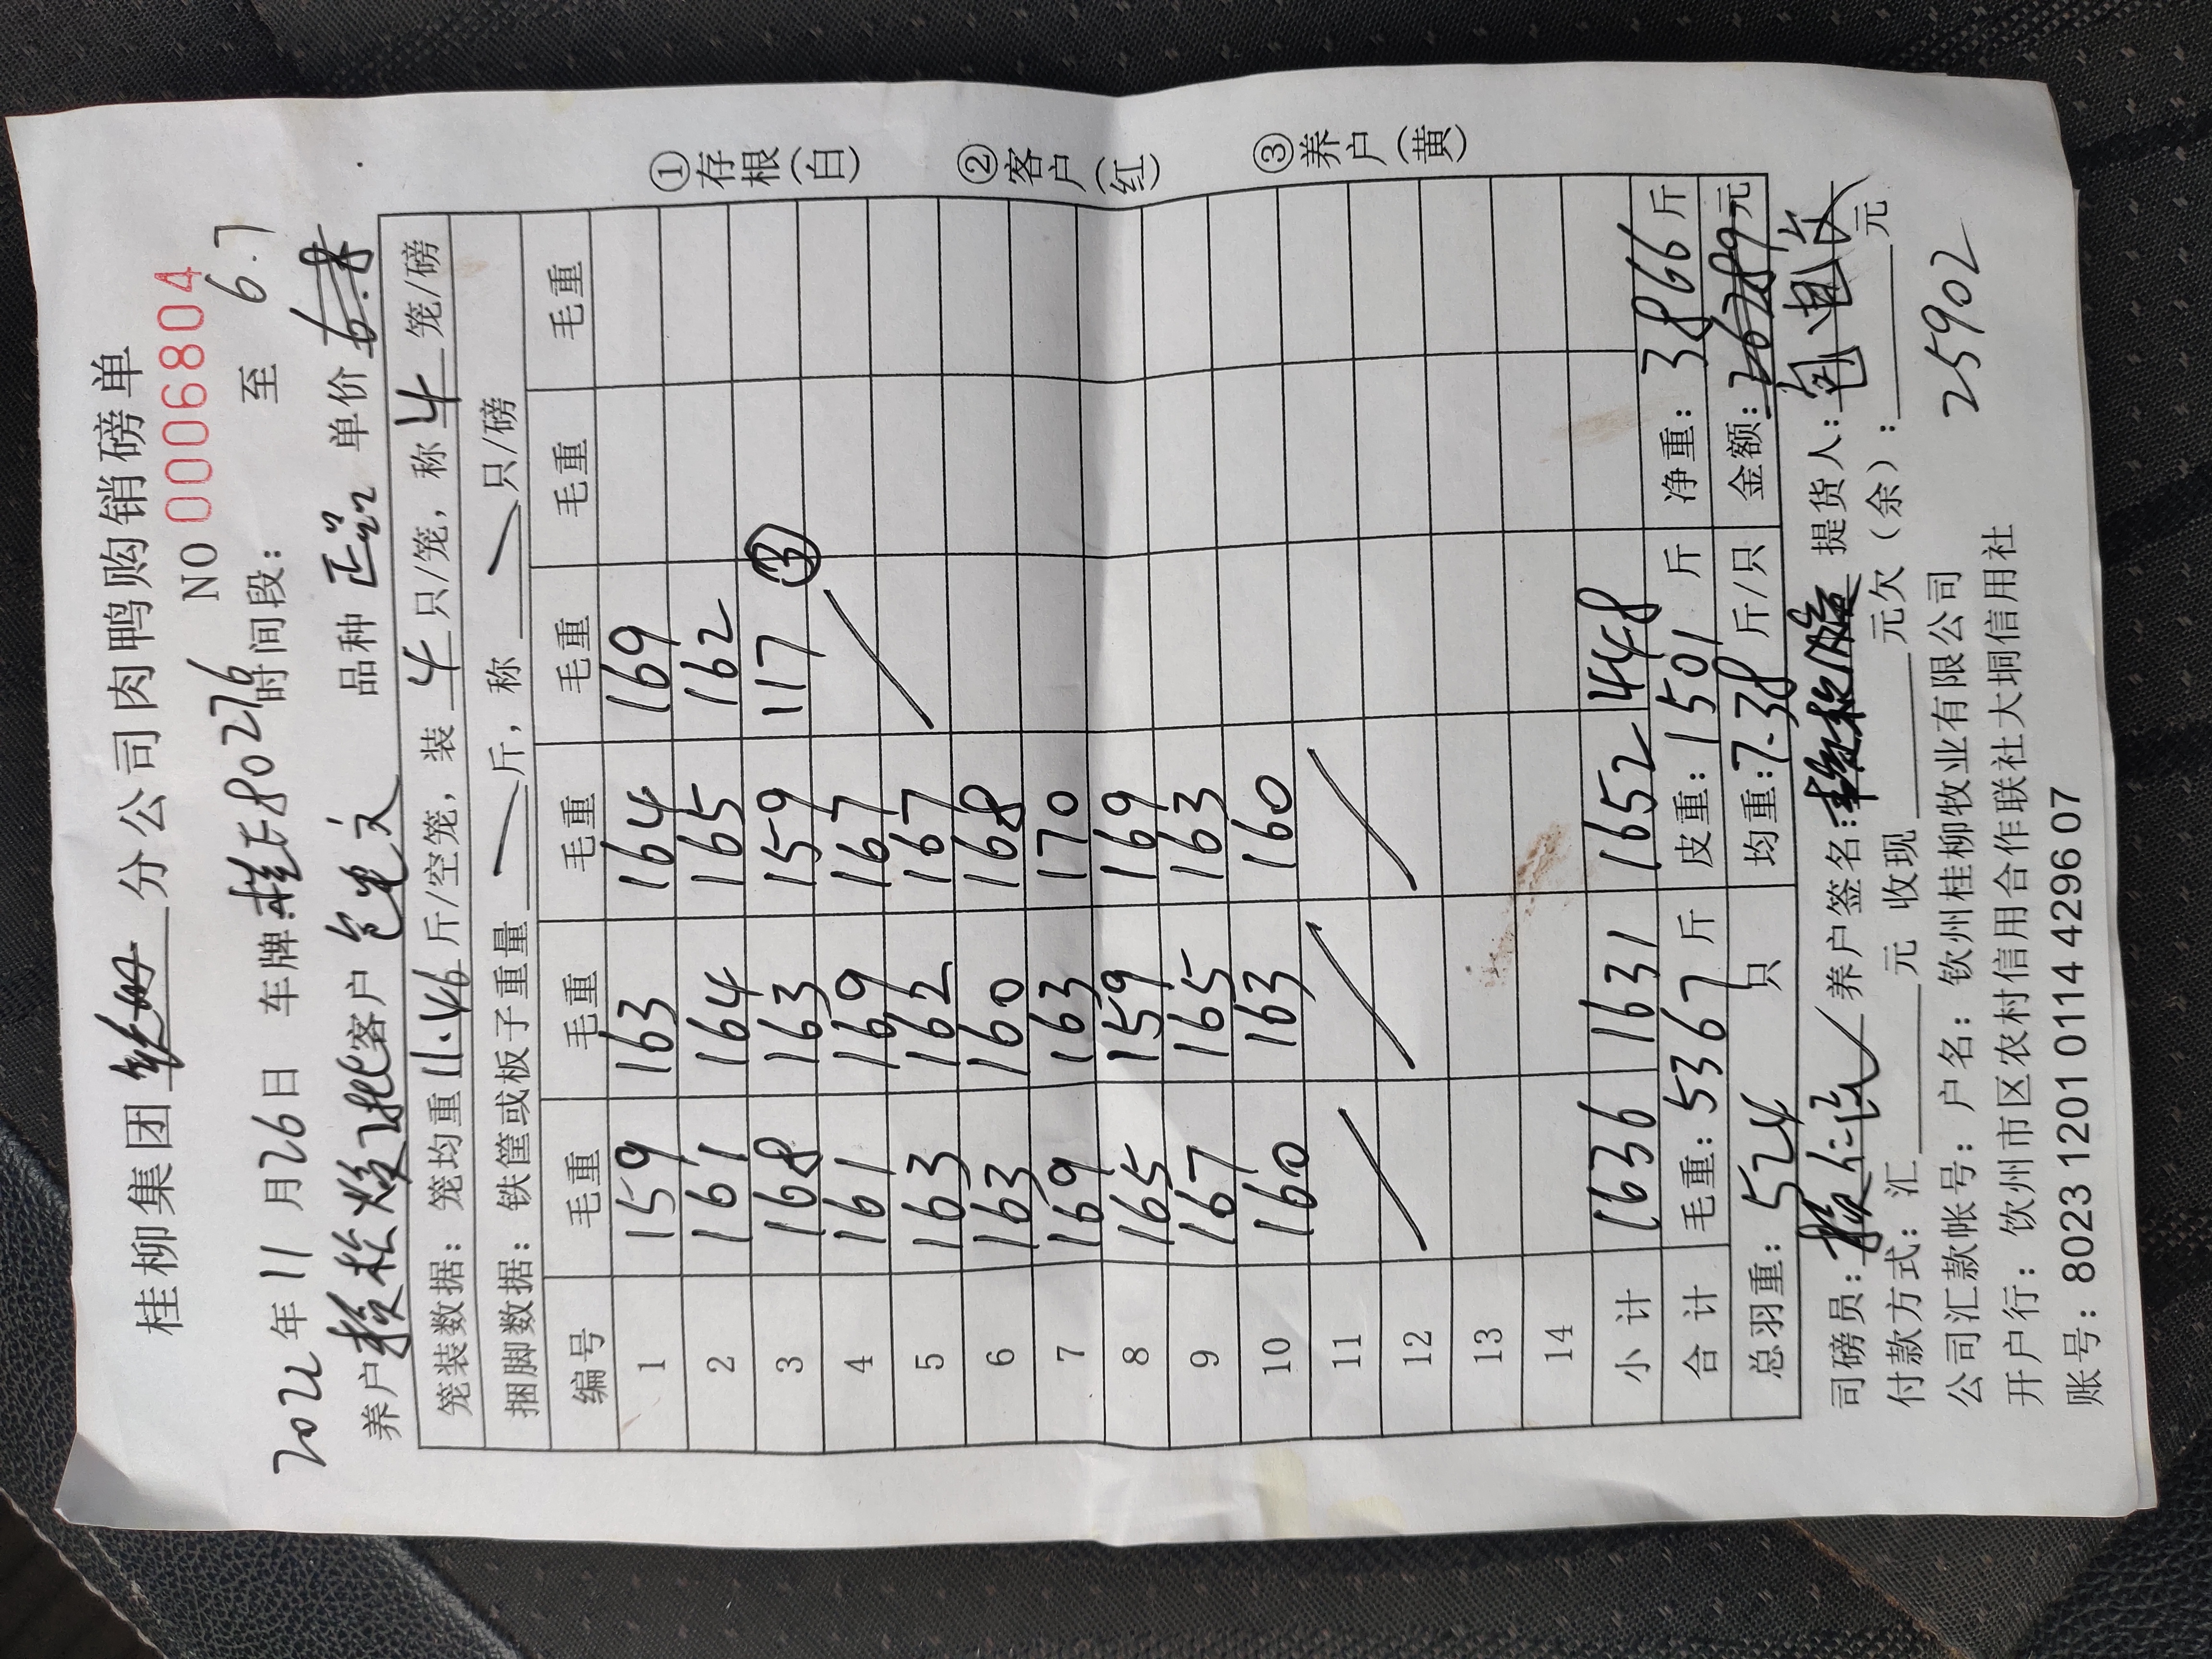 桂柳集团 分公司肉鸭购销磅单
NO 0006804
2022年11月26日 车牌:桂E80276 时间段: 至 6.7
养户 客户 包电文 品种 正品 单价
笼装数据: 笼均重11.46斤/空笼, 装4只/笼, 称4笼/磅
捆脚数据: 铁筐或板子重量 斤, 称 只/磅
编号 毛重 毛重 毛重 毛重 毛重 毛重
1 159 163 164 169
2 161 164 165 162
3 168 163 159 117 ③
4 161 169 167
5 163 162 167
6 163 160 168
7 169 163 170
8 165 159 169
9 167 165 163
10 160 163 160
11
12
13
14
小计 1636 1631 1652 448
合计 毛重: 5367斤 皮重: 1501斤 净重: 3866斤
总羽重: 524只 均重: 7.38斤/只 金额: 元
司磅员: 养户签名: 提货人:
付款方式: 汇 元 收现 元欠(余): 元
公司汇款帐号: 户名: 钦州桂柳牧业有限公司
25902
开户行: 钦州市区农村信用合作联社大垌信用社
账号: 8023 1201 0114 4296 07
①存根(白)
②客户(红)
③养户(黄)